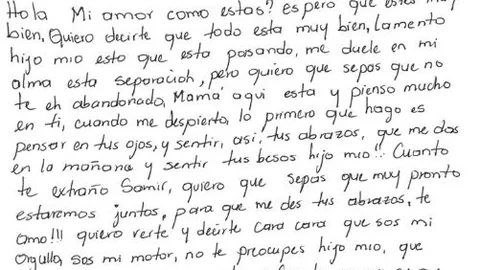 Hola Mi amor como estas? espero que estes muy
bien, Quiero decirte que todo esta muy bien, Lamento
hijo mio esto que esta pasando, me duele en mi
alma esta separación, pero quiero que sepas que no
te eh abandonado, Mamá aqui esta y pienso mucho
en ti, cuando me despierto, lo primero que hago es
pensar en tus ojos, y sentir, asi, tus abrazos, que me das
en la mañana y sentir tus besos hijo mio!! Cuanto
te extraño Samir, quiero que sepas que muy pronto
estaremos juntos, para que me des tus abrazos, te
amo!!! quiero verte y decirte cara cara que sos mi
orgullo, sos mi motor, no te preocupes hijo mio, que